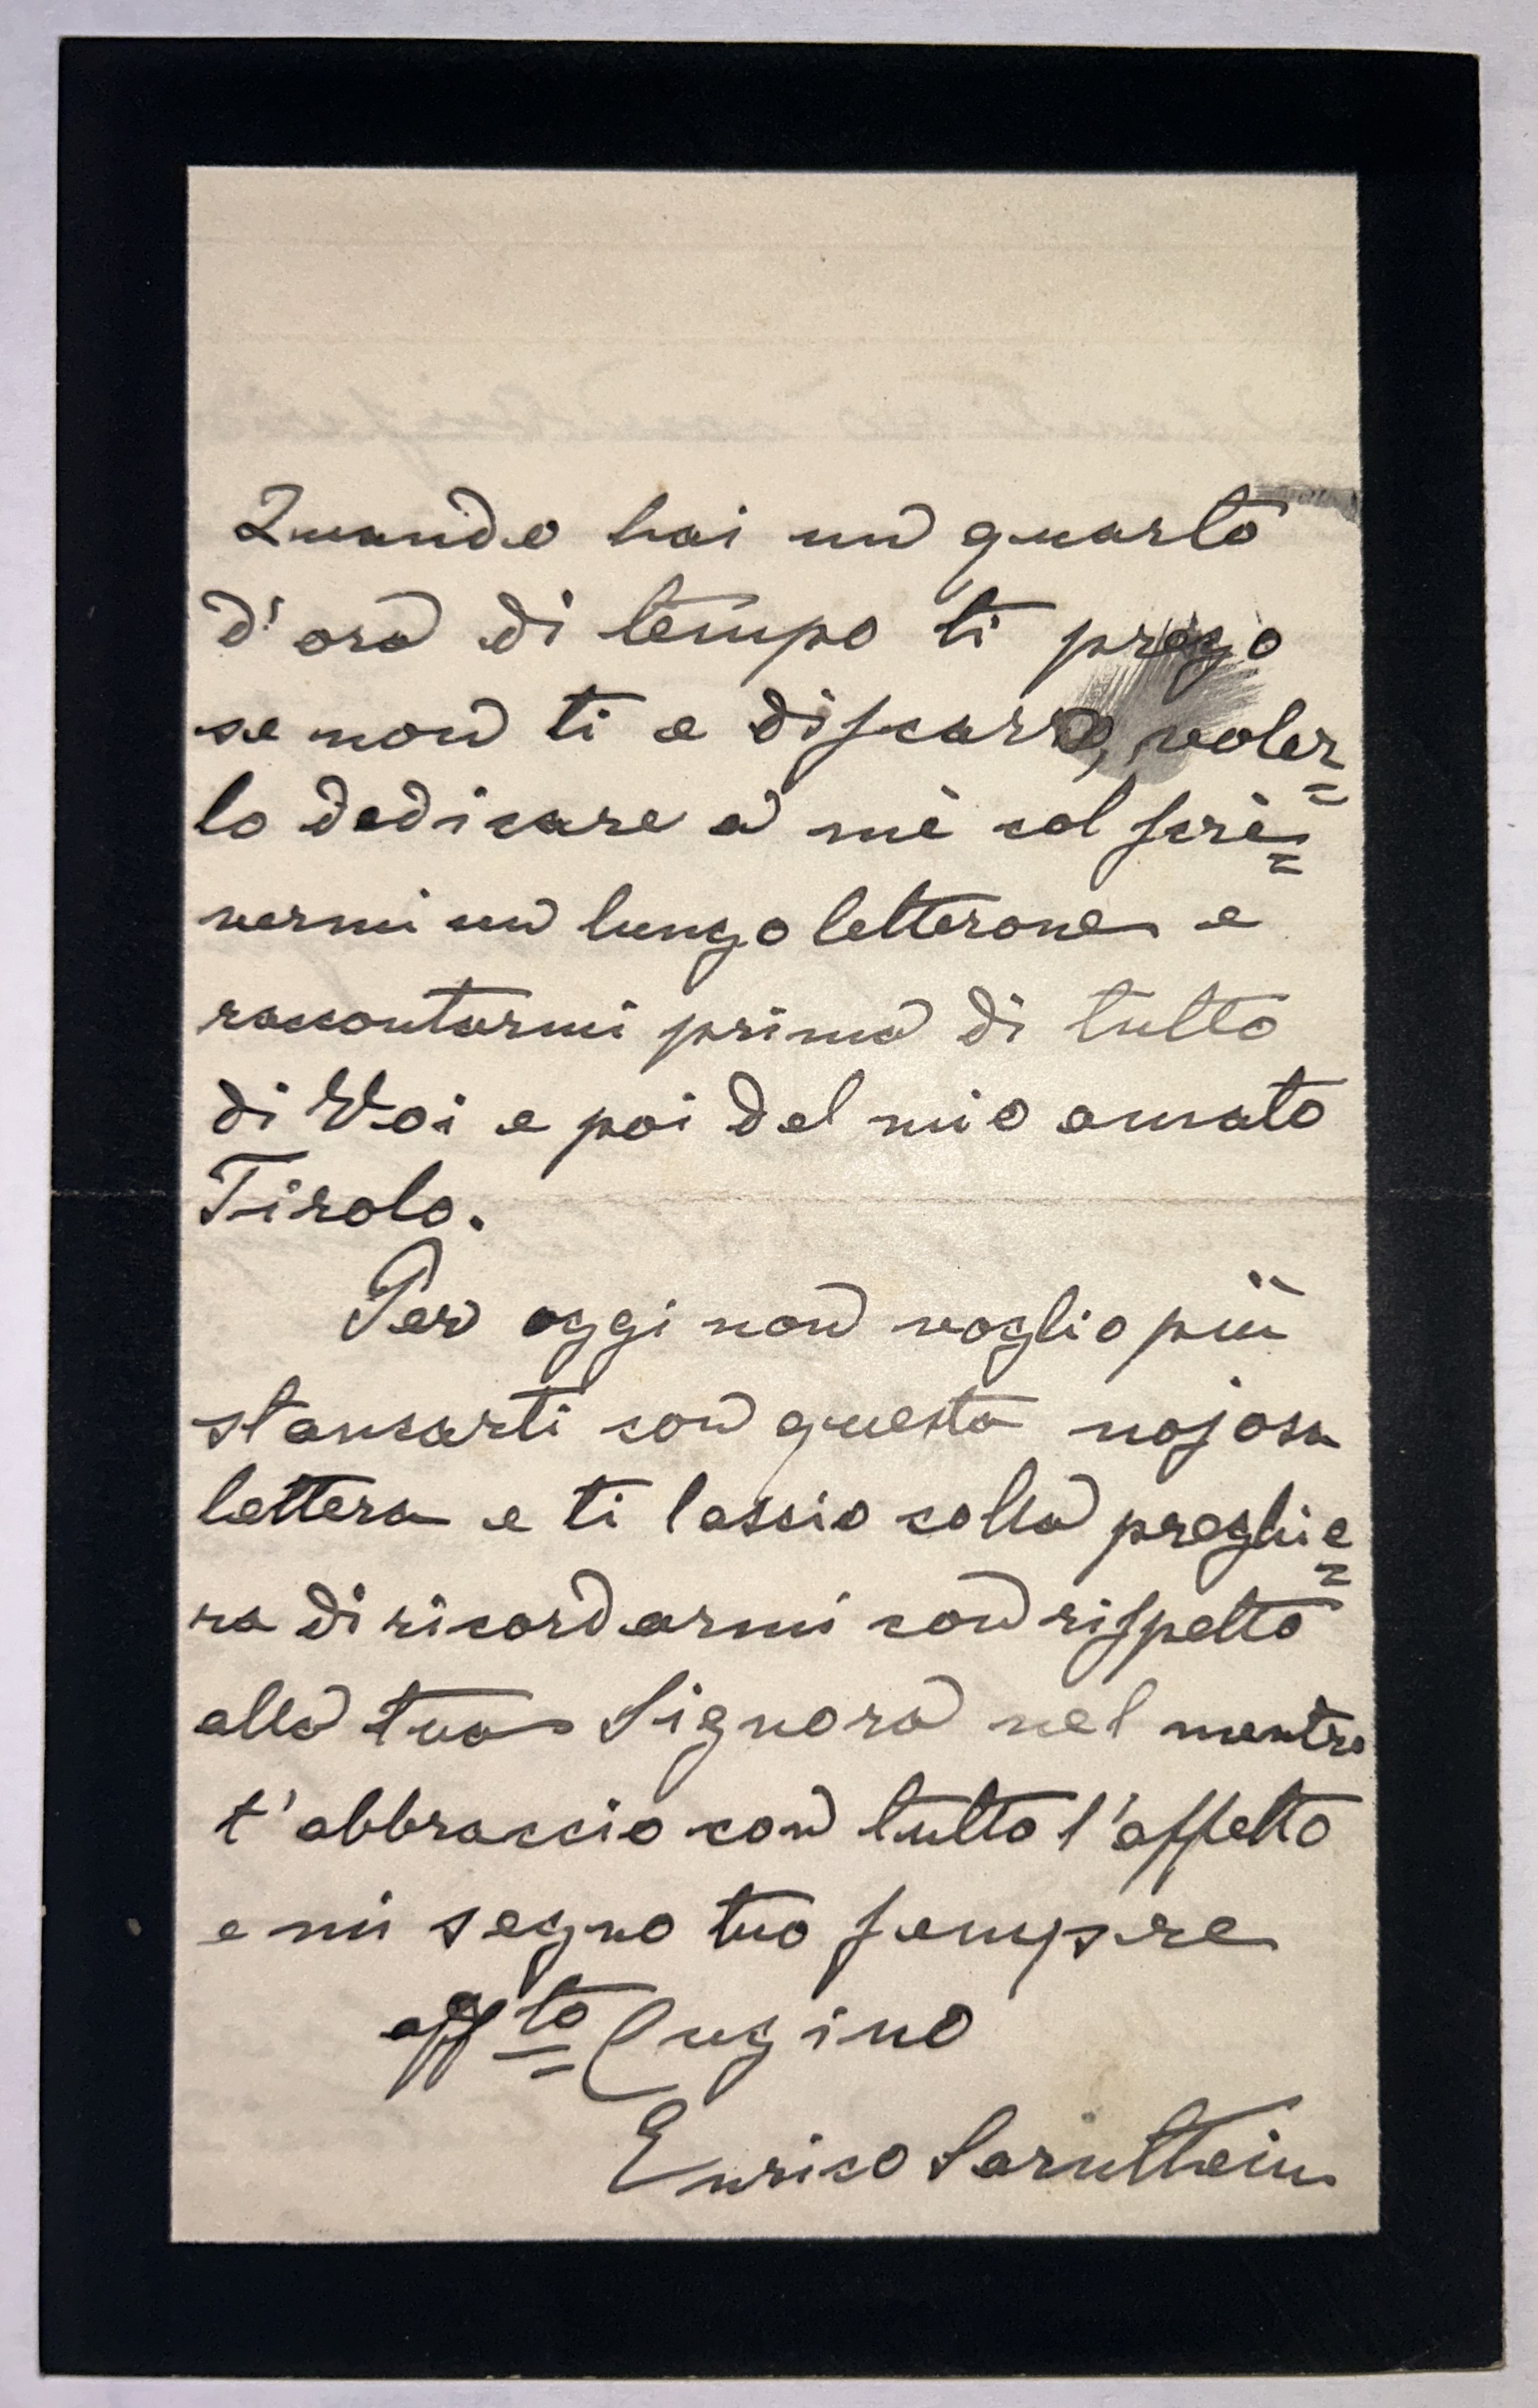 Quando hai un quarto
d'ora di tempo ti prego
se non ti e discaro, voler=
lo dedicare a mè col scri=
vermi un lungo letterone e
raccontarmi prima di tutto
di Voi e poi del mio amato
Tirolo.
Per oggi non voglio più
stancarti con questa nojosa
lettera e ti lascio colla preghie=
ra di ricordarmi con rispetto
alla tua Signora nel mentre
t'abbraccio con tutto l'affetto
e mi segno tuo sempre
affto Cugino
Enrico